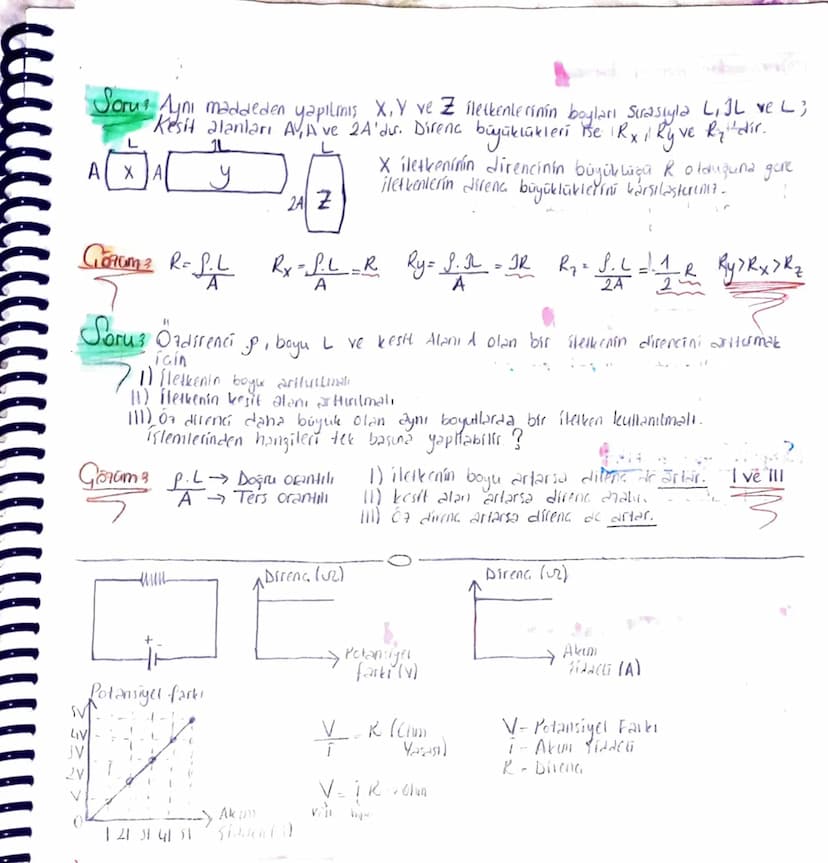 Soru: Aynı maddeden yapılmış X, Y ve Z iletkenlerinin boyları sırasıyla L, 3L ve L;
Kesit alanları A, A ve 2A'dır. Direnç büyüklükleri ise Rx, Ry ve Rz'dir.
L 3L L
A X A Y 2A Z
X iletkeninin direncinin büyüklüğü R olduğuna göre
iletkenlerin direnç büyüklüklerini karşılaştırınız.
Çözüm: R = ρ.L/A Rx = ρ.L/A = R Ry = ρ.3L/A = 3R Rz = ρ.L/2A = 1/2 R Ry > Rx > Rz
Soru: Özdirenci ρ, boyu L ve kesit alanı A olan bir iletkenin direncini arttırmak
için
I) İletkenin boyu arttırılmalı
II) İletkenin kesit alanı arttırılmalı
III) Öz direnci daha büyük olan aynı boyutlarda bir iletken kullanılmalı.
işlemlerinden hangileri tek başına yapılabilir?
Çözüm: ρ.L → Doğru orantılı
A → Ters orantılı
I) iletkenin boyu artarsa direnç de artar. I ve III
II) kesit alan artarsa direnç azalır.
III) Öz direnç artarsa direnç de artar.
+ -
Direnç (Ω)
Potansiyel
farkı (V)
Direnç (Ω)
Akım
Şiddeti (A)
Potansiyel farkı
5V
4V
3V
2V
V
0
I 2I 3I 4I 5I
Akım
Şiddeti
V/i = R (Ohm
Yasası)
V = i R
V = Potansiyel Farkı
i - Akım Şiddeti
R - Direnç